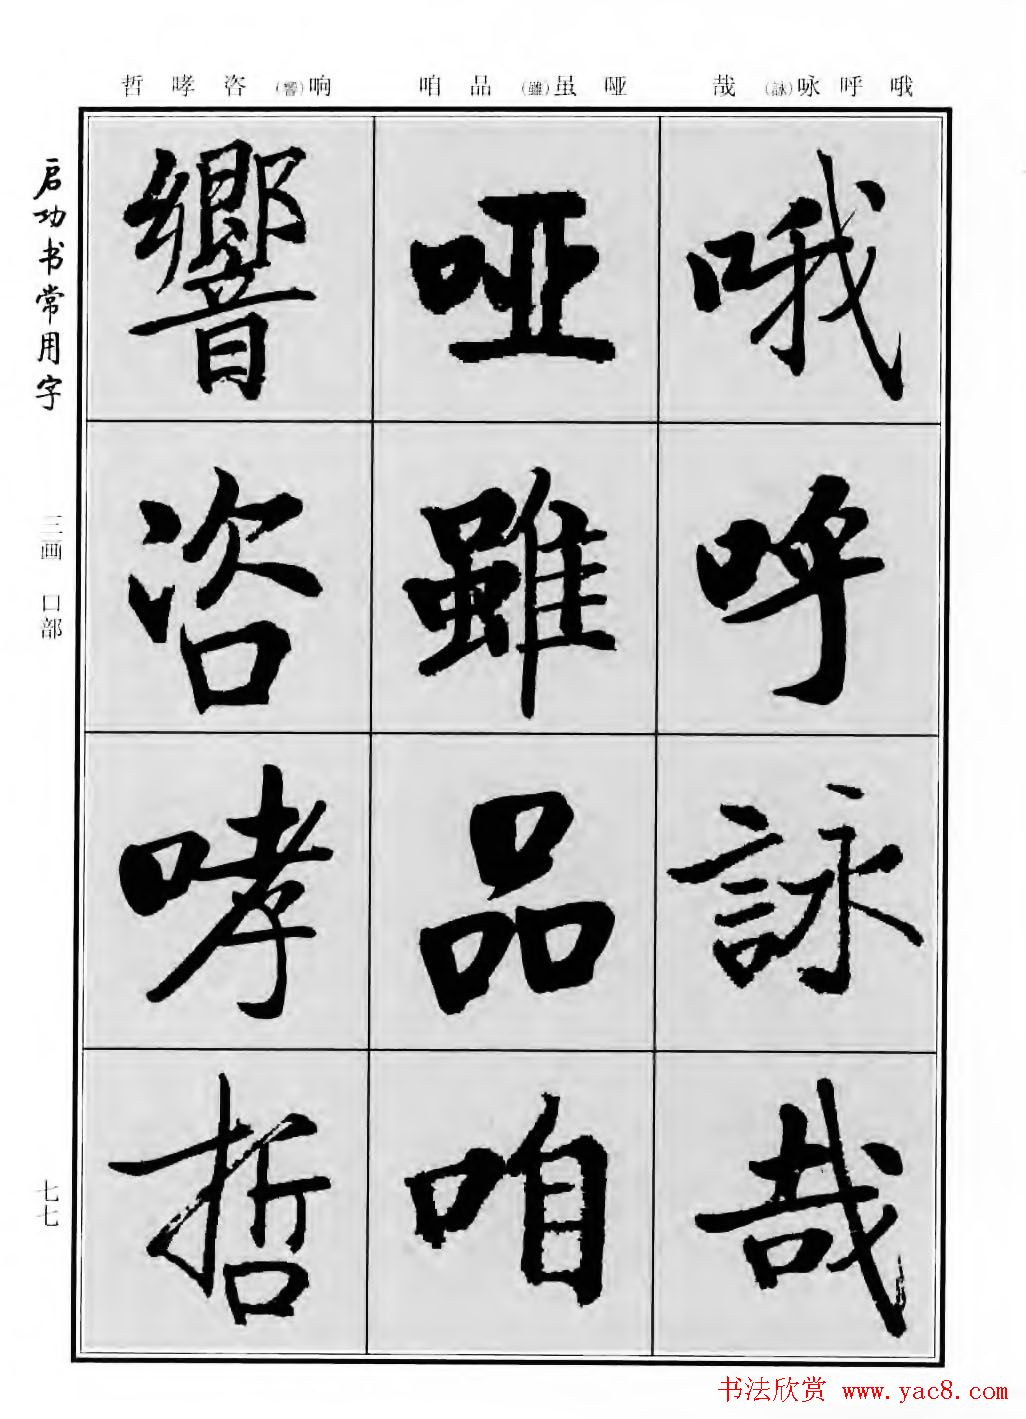 哲哮咨(響)响 咱品(雖)虽哑 哉(詠)咏呼哦
启功书常用字
三画 口部
七七
哦呼詠哉
哑雖品咱
響咨哮哲
书法欣赏 www.yac8.com